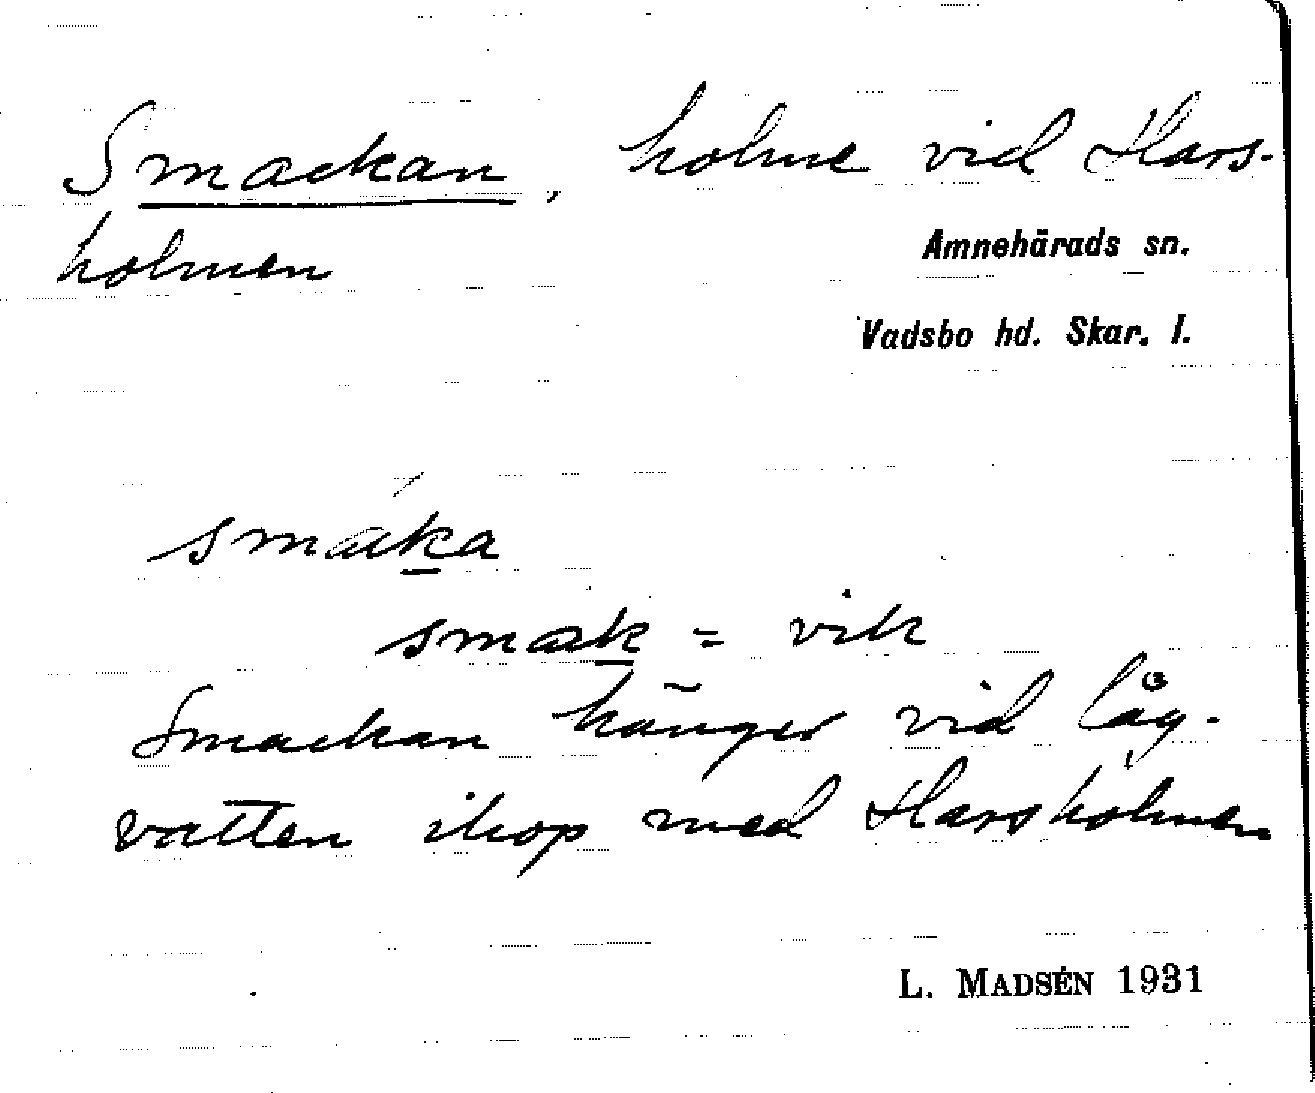 Smackan, holme vid Hars-
holmen
Amnehärads sn.
Vadsbo hd. Skar. l.
smáka
smak = vik
Smackan hänger vid låg-
vatten ihop med Harsholmen
L. MADSÉN 1931